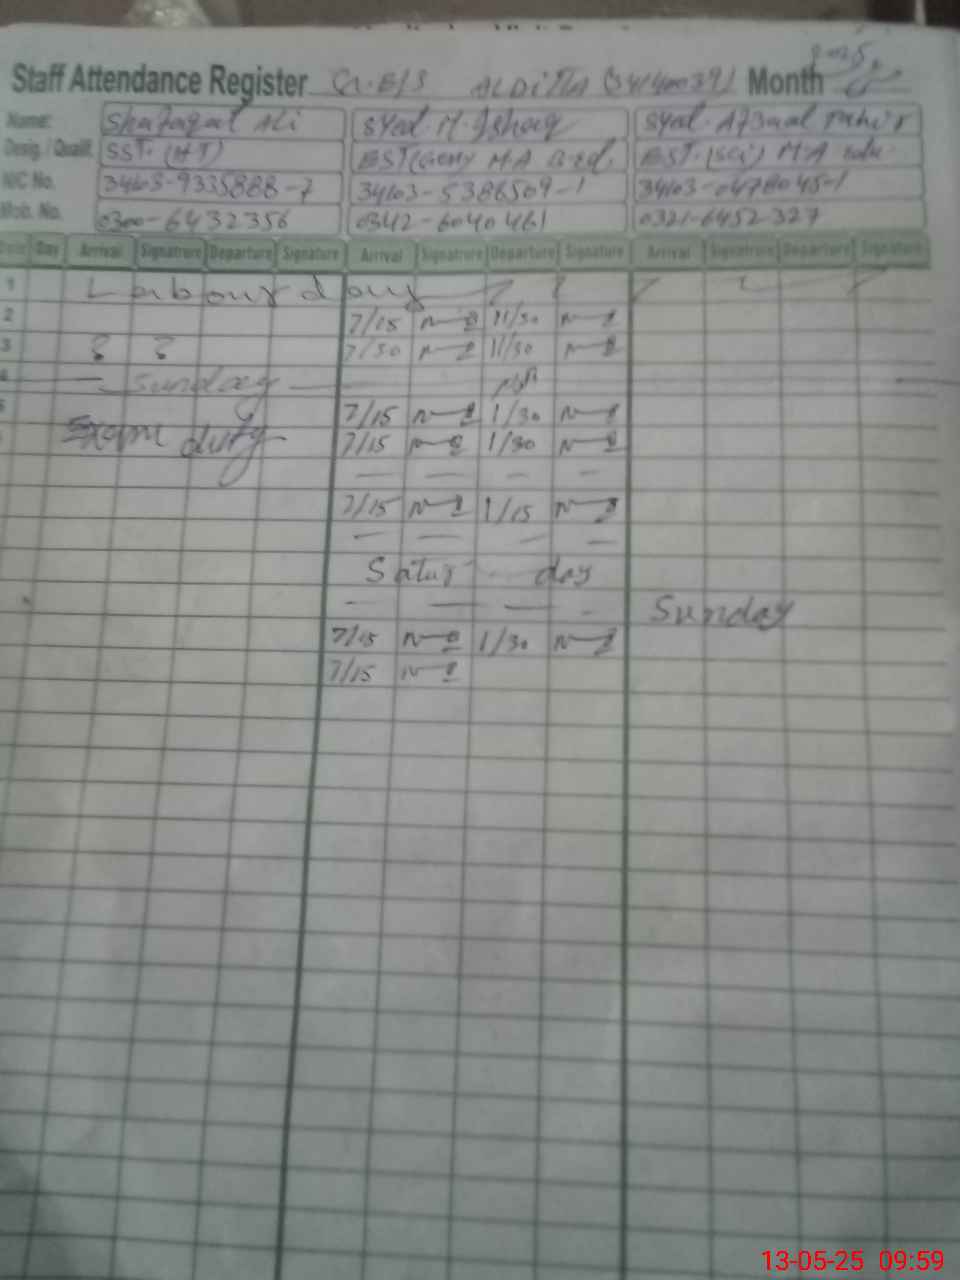 Staff Attendance Register G.E/S ALDITTA Month 2025
Name: Shafaqat Ali Syed M. Ishaq Syed. Afzaal
Desig. / Qualif. SST. (HT) EST (Gen) M.A B.ed. EST. (Sci) M A
NIC No. 34603-9335888-7 34603-5386509-1 34603-0478045-1
Mob. No. 0300-6432356 0342-6040461 0321-6452327
Date Day Arrival Signature Departure Signature Arrival Signature Departure Signature Arrival Signature Departure Signature
1 Labour day
2 7/15 11/30
3 7/30 11/30
4 Sunday
5 7/15 1/30
Exam duty 7/15 1/30
— — — —
7/15 1/15
— — — —
Saturday
— — — — Sunday
7/15 1/30
7/15
13-05-25 09:59